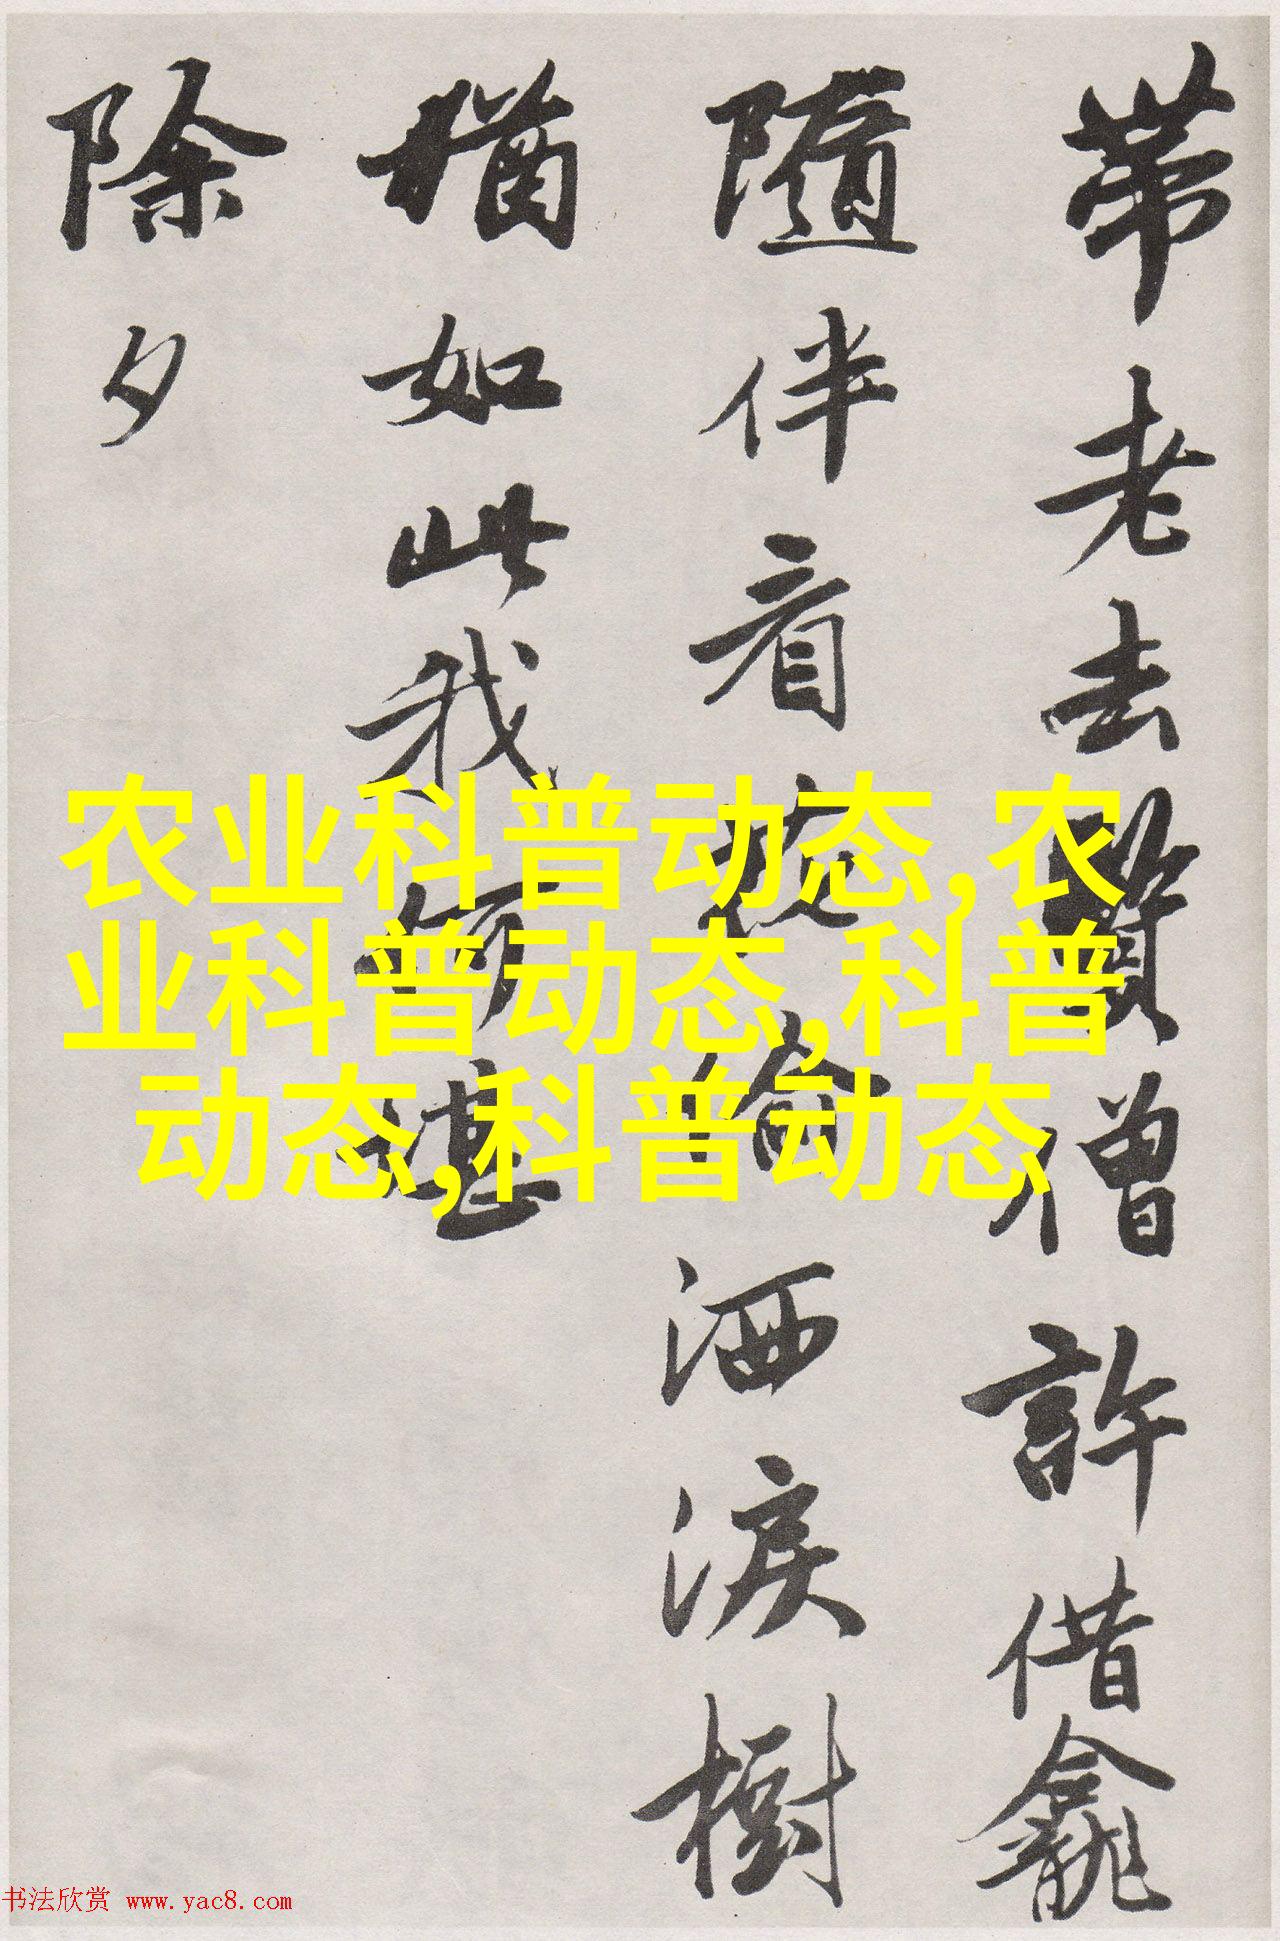 帶老去僧許借龕
隨伴看花偷洒淚樹
猶如此我何堪
除夕
农业科普动态,农
业科普动态,科普
动态,科普动态
书法欣赏 www.yac8.com